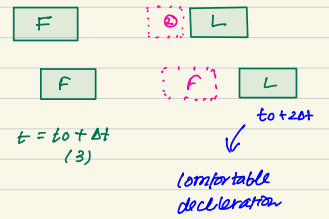 F ② L
F F L
t = to + Δt
(3)
to + 2Δt
Comfortable
decleleration